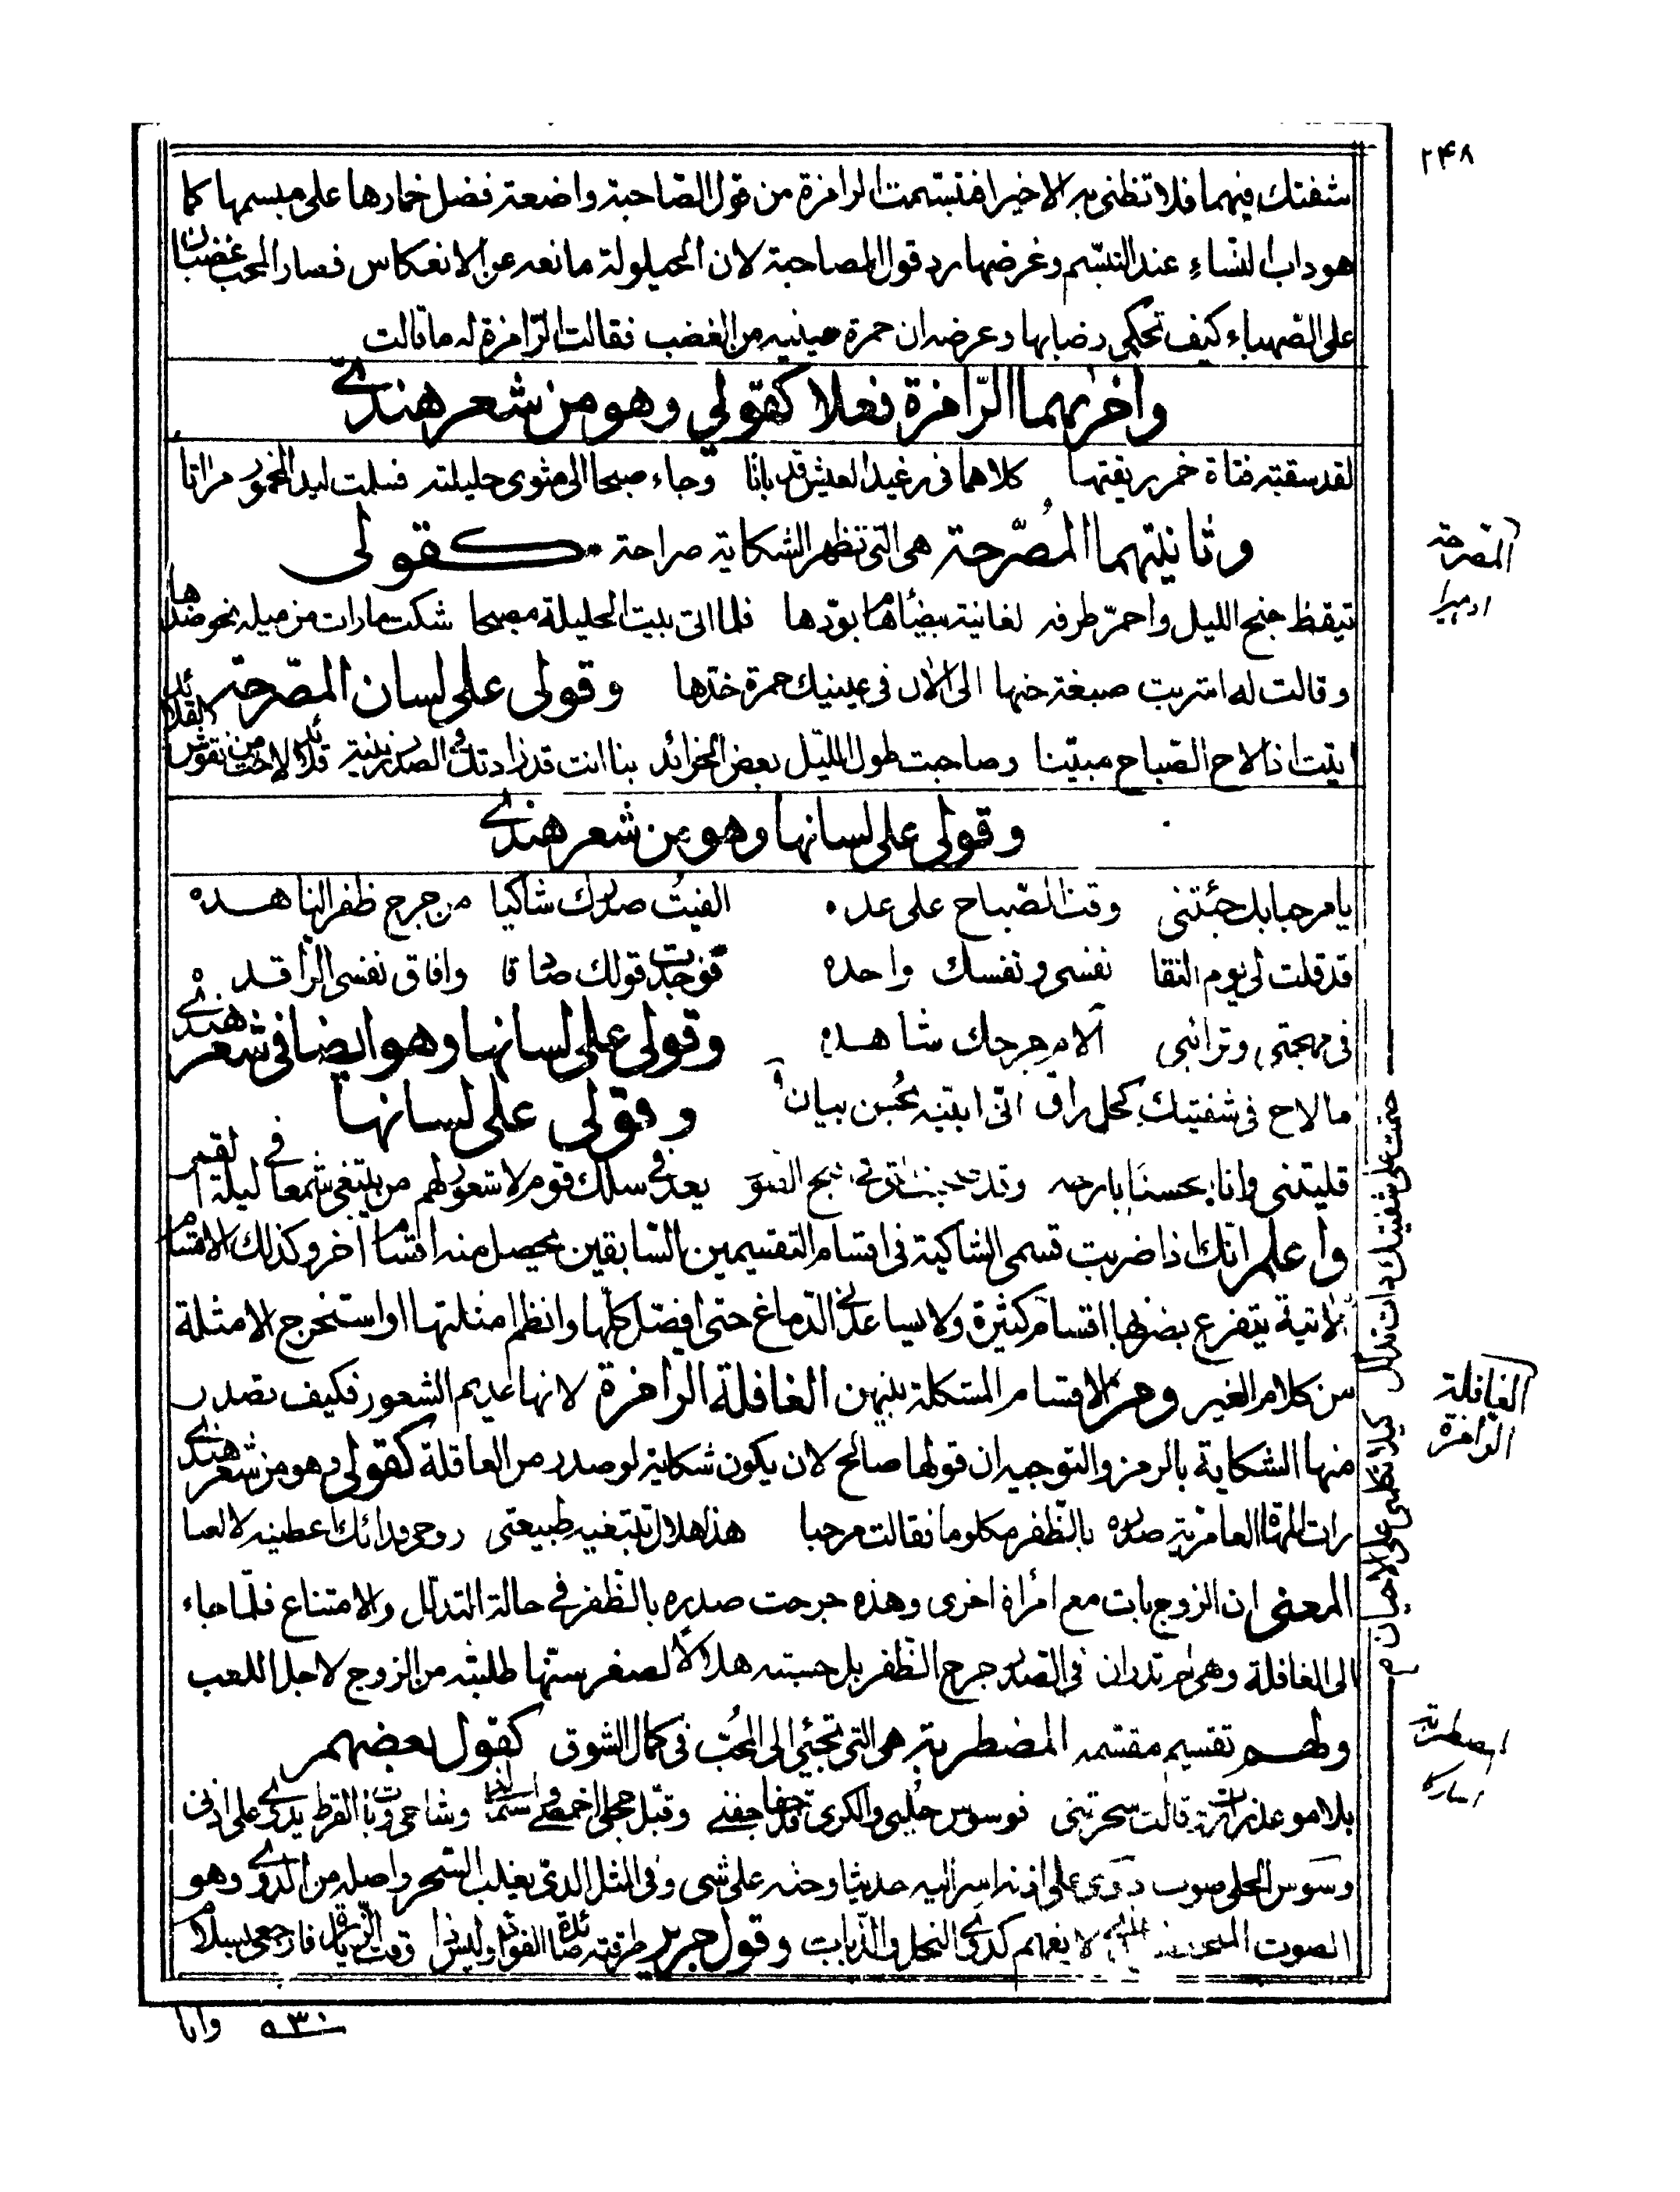 ٢٤٨
شفتك فيهما فلا تظنى به الا خيرا فتبسمت الرامزة من قول الصاحبة واضعة فضل خمارها على مبسمها كما
هو داب النساء عند التبسّم وغرضها رد قول المصاحبة لان الحيلولة مانعه عن الانعكاس فصار المحب غضبان
على الصهباء كيف تحكى رضابها وغرضه ان حمرة عينيه من الغضب فقالت الرّامزة له ما قالت
واخرٰىهما الرّامزة فعلا كقولي وهو من شعر هندي
لقد سقته فتاة خمر ريقتها كلاهما فى رغيد العيش قد باتا وجاء صبحا الى مثوى حليلته فسلمت ليد المخمور مراٰتا
وثانيتهما المُصّرحة هى التى تظهر الشكاية صراحة كقولى
المصرحة
ادهيرا
تيقظ جنح الليل واحمرّ طرفه لغانية بيضاء هام بودّها فلما اتى بيت الحليلة مصبحا شكت ما رات من ميله نحو ضدها
وقالت له اشربت صبغة خدها الى الاٰن فى عينيك حمرة خدّها وقولى على لسان المصّرحة
اتيت اذا لاح الصّباح مبيّتنا وصاحبت طول اللّيل بعض الخرائد بنا انت قد زادتك فى الصدر زينة قلائد لاحت من نقوش القلائد
وقولي على لسانها وهو من شعر هندي
يا مرحبا بك جئتنى وقت الصّباح على عده الفيتُ صدرك شاكيا من جرح ظفر الناهده
قد قلت لى يوم النقا نفسى ونفسك واحده فوجدت قولك صادقا وافاق نفسى الراقده
فى مهجتى وترائبى اٰلام جرحك شاهده وقولى على لسانها وهو ايضا فى شعر هندي
ما لاح فى شفتيك كحل راق انّى ابيّنه بحُسن بيان
ختمت على شفتيك ذات تدلل كيلا تكلمنى على الاحيان
وقولى على لسانها
قليتنى وانا بحسنا يعد فى سلك قوم لا شعور لهم من يبتغى شمعا فى ليلة القمر
واعلم انّك اذا ضربت قسمى الشاكية فى اقسام التقسيمين السّابقين يحصل منه اقسام اٰخر وكذلك الاقسام
الاٰتية يتفرع بضربها اقسام كثيرة ولا يساعدنى الدّماغ حتى افصّل كلّها وانظم امثلتها او استخرج الامثلة
من كلام الغير وهن الاقسام المشكلة بينهن الغافلة الرامزة لانها عديم الشعور فكيف تصدر
الغافلة
الرامزة
منها الشكاية بالرمز والتوجيه ان قولها صالح لان يكون شكاية لو صدر من العاقلة كقولى وهو من شعر هندي
رات المهاة العامرية صدره بالظفر مكلوما فقالت مرحبا هذا هلال تبتغيه طبيعتى روحى فدائك اعطينه لالعبا
المعنى ان الزوج بات مع امرأة اخرى وهذه جرحت صدره بالظّفر فى حالة التدلّل والامتناع فلمّا جاء
الى الغافلة وهى لم تدر ان فى الصدر جرح الظّفر بل حسبته هلالا لصغر سنّها طلبته من الزوج لاجل اللعب
ولهم تقسيم مقسمه المضطربة هى التى تجئى الى المُحب فى كمال الشوق كقول بعضهم
وسوس الحلى صوت دوى على اذنه اسراليه حديثا وحثه على شى وفى المثل الدوى يغلب السحر واصله من الدوى وهو
الصوت لا يفهم كدوى النحل والذباب وقول جرير طرقتك صائدة الفؤاد وليس ذا وقت الزيارة فارجعى بسلام
٥٣٠
وانا